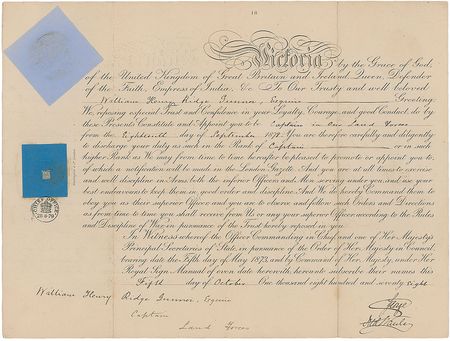 Victoria by the Grace of God,
of the United Kingdom of Great Britain and Ireland, Queen, Defender
of the Faith, Empress of India, &c. To Our Trusty and well beloved
William Henry Ridge Esquire Greeting.
We, reposing especial Trust and Confidence in your Loyalty, Courage, and good Conduct, do by
these Presents Constitute and Appoint you to be Captain in Our Land Forces
from the Eighteenth day of September 1878. You are therefore carefully and diligently
to discharge your duty as such in the Rank of Captain or in such
higher Rank as We may from time to time hereafter be pleased to promote or appoint you to,
of which a notification will be made in the London Gazette. And you are at all times to exercise
and well discipline in Arms both the inferior Officers and Men serving under you and use your
best endeavours to keep them in good order and discipline. And We do hereby Command them to
obey you as their superior Officer and you are to observe and follow such Orders and Directions
as from time to time you shall receive from Us or any your superior Officer according to the Rules
and Discipline of War in pursuance of the Trust hereby reposed in you.
In Witness whereof the Officer Commanding in Chief and one of Her Majesty's
Principal Secretaries of State, in pursuance of the Order of Her Majesty in Council,
bearing date the Fifth day of May 1873, and by Command of Her Majesty, under Her
Royal Sign Manual of even date herewith, hereunto subscribe their names this
Fifth day of October One thousand eight hundred and seventy eight
William Henry Ridge Esquire
Captain
Land Forces